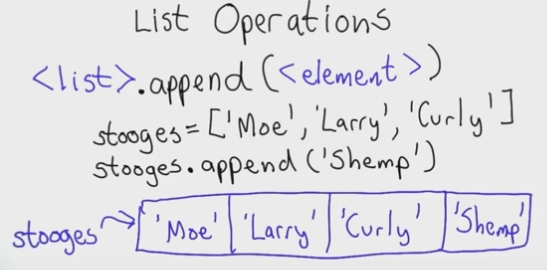 List Operations
<list>.append(<element>)
stooges = ['Moe', 'Larry', 'Curly']
stooges.append('Shemp')
stooges → 'Moe' 'Larry' 'Curly' 'Shemp'